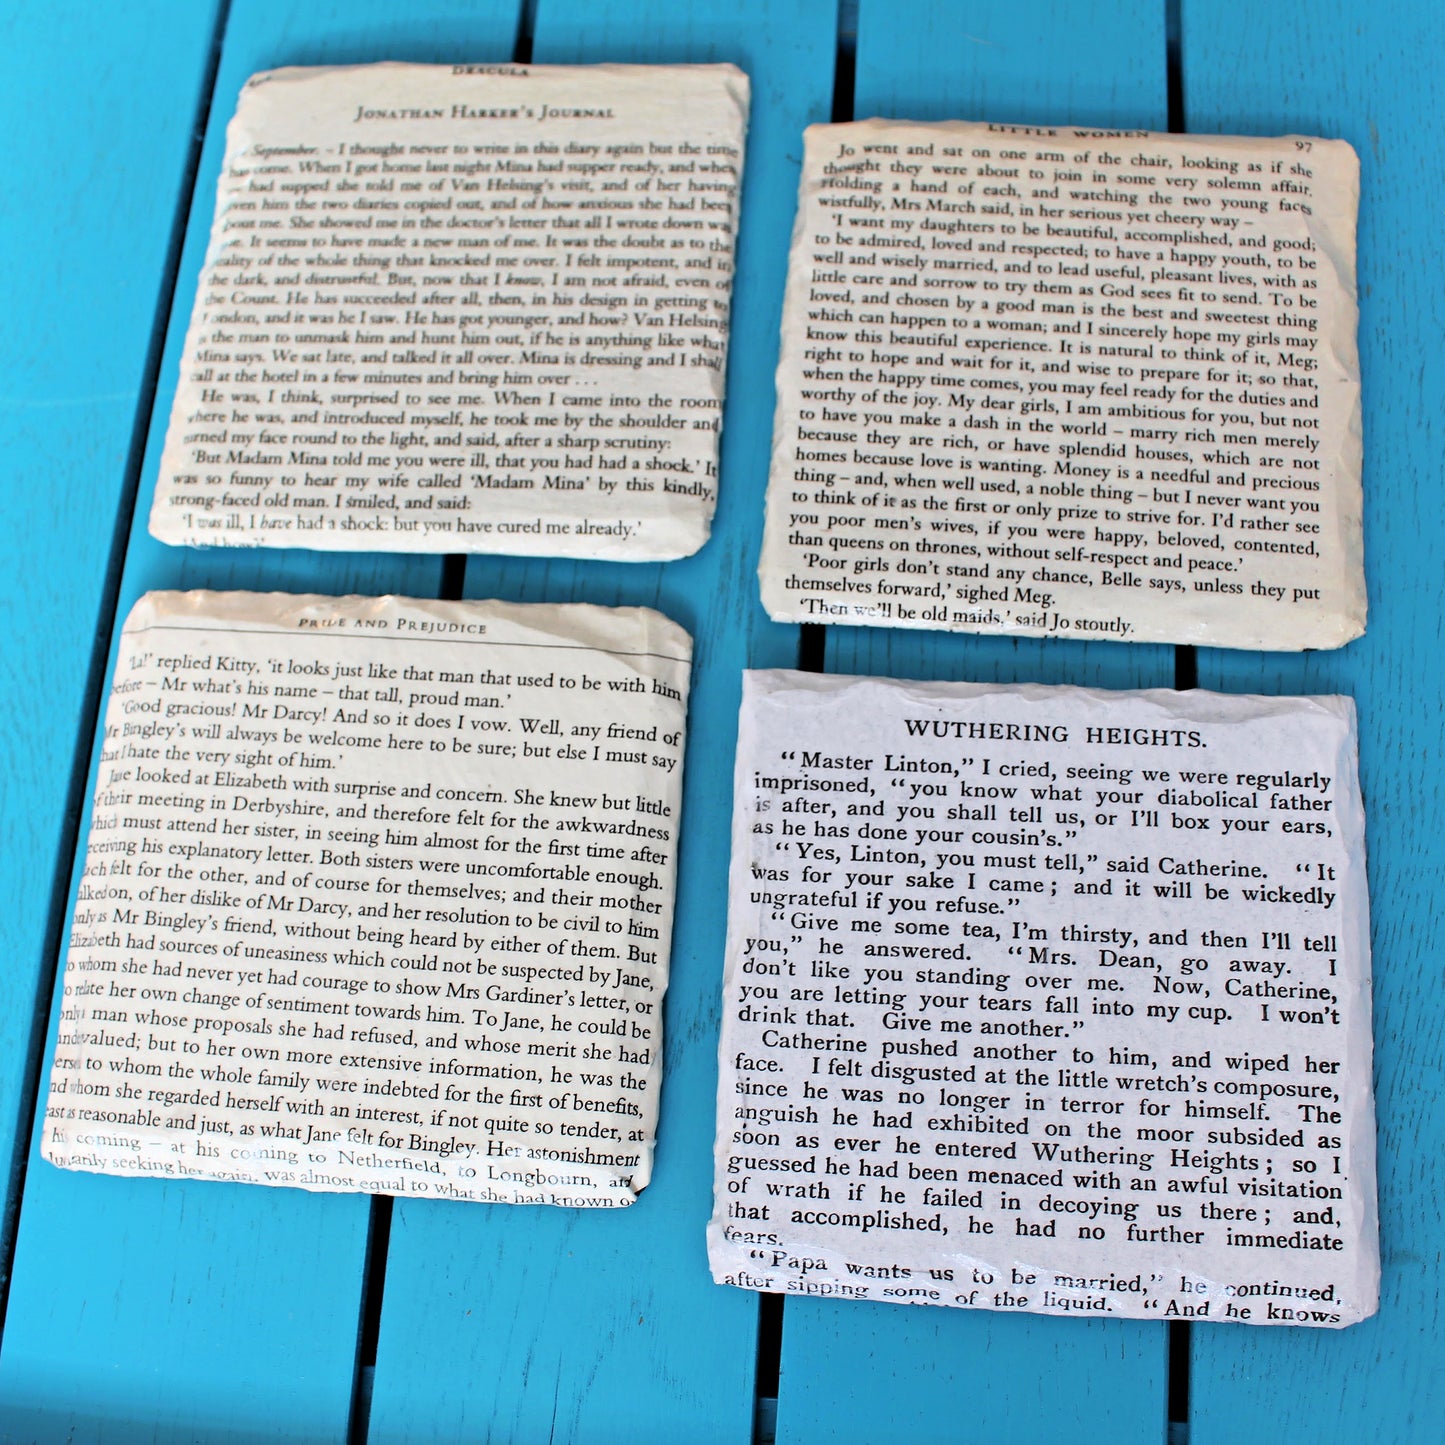 DRACULA
JONATHAN HARKER'S JOURNAL
September. – I thought never to write in this diary again but the time
has come. When I got home last night Mina had supper ready, and when
had supped she told me of Van Helsing's visit, and of her having
given him the two diaries copied out, and of how anxious she had been
about me. She showed me in the doctor's letter that all I wrote down was
It seems to have made a new man of me. It was the doubt as to the
reality of the whole thing that knocked me over. I felt impotent, and in
the dark, and distrustful. But, now that I know, I am not afraid, even of
the Count. He has succeeded after all, then, in his design in getting to
London, and it was he I saw. He has got younger, and how? Van Helsing
is the man to unmask him and hunt him out, if he is anything like what
Mina says. We sat late, and talked it all over. Mina is dressing and I shall
call at the hotel in a few minutes and bring him over . . .
He was, I think, surprised to see me. When I came into the room
where he was, and introduced myself, he took me by the shoulder and
turned my face round to the light, and said, after a sharp scrutiny:
'But Madam Mina told me you were ill, that you had had a shock.' It
was so funny to hear my wife called 'Madam Mina' by this kindly,
strong-faced old man. I smiled, and said:
'I was ill, I have had a shock: but you have cured me already.'
'And how?'
LITTLE WOMEN 97
Jo went and sat on one arm of the chair, looking as if she
thought they were about to join in some very solemn affair.
Holding a hand of each, and watching the two young faces
wistfully, Mrs March said, in her serious yet cheery way –
'I want my daughters to be beautiful, accomplished, and good;
to be admired, loved and respected; to have a happy youth, to be
well and wisely married, and to lead useful, pleasant lives, with as
little care and sorrow to try them as God sees fit to send. To be
loved, and chosen by a good man is the best and sweetest thing
which can happen to a woman; and I sincerely hope my girls may
know this beautiful experience. It is natural to think of it, Meg;
right to hope and wait for it, and wise to prepare for it; so that,
when the happy time comes, you may feel ready for the duties and
worthy of the joy. My dear girls, I am ambitious for you, but not
to have you make a dash in the world – marry rich men merely
because they are rich, or have splendid houses, which are not
homes because love is wanting. Money is a needful and precious
thing – and, when well used, a noble thing – but I never want you
to think of it as the first or only prize to strive for. I'd rather see
you poor men's wives, if you were happy, beloved, contented,
than queens on thrones, without self-respect and peace.'
'Poor girls don't stand any chance, Belle says, unless they put
themselves forward,' sighed Meg.
'Then we'll be old maids,' said Jo stoutly.
PRIDE AND PREJUDICE
'La!' replied Kitty, 'it looks just like that man that used to be with him
before – Mr what's his name – that tall, proud man.'
'Good gracious! Mr Darcy! And so it does I vow. Well, any friend of
Mr Bingley's will always be welcome here to be sure; but else I must say
that I hate the very sight of him.'
Jane looked at Elizabeth with surprise and concern. She knew but little
of their meeting in Derbyshire, and therefore felt for the awkwardness
which must attend her sister, in seeing him almost for the first time after
receiving his explanatory letter. Both sisters were uncomfortable enough.
Each felt for the other, and of course for themselves; and their mother
talked on, of her dislike of Mr Darcy, and her resolution to be civil to him
only as Mr Bingley's friend, without being heard by either of them. But
Elizabeth had sources of uneasiness which could not be suspected by Jane,
to whom she had never yet had courage to show Mrs Gardiner's letter, or
to relate her own change of sentiment towards him. To Jane, he could be
only a man whose proposals she had refused, and whose merit she had
undervalued; but to her own more extensive information, he was the
person to whom the whole family were indebted for the first of benefits,
and whom she regarded herself with an interest, if not quite so tender, at
least as reasonable and just, as what Jane felt for Bingley. Her astonishment
his coming – at his coming to Netherfield, to Longbourn, and
seeking her again, was almost equal to what she had known on
WUTHERING HEIGHTS.
"Master Linton," I cried, seeing we were regularly
imprisoned, "you know what your diabolical father
is after, and you shall tell us, or I'll box your ears,
as he has done your cousin's."
"Yes, Linton, you must tell," said Catherine. "It
was for your sake I came; and it will be wickedly
ungrateful if you refuse."
"Give me some tea, I'm thirsty, and then I'll tell
you," he answered. "Mrs. Dean, go away. I
don't like you standing over me. Now, Catherine,
you are letting your tears fall into my cup. I won't
drink that. Give me another."
Catherine pushed another to him, and wiped her
face. I felt disgusted at the little wretch's composure,
since he was no longer in terror for himself. The
anguish he had exhibited on the moor subsided as
soon as ever he entered Wuthering Heights; so I
guessed he had been menaced with an awful visitation
of wrath if he failed in decoying us there; and,
that accomplished, he had no further immediate
fears.
"Papa wants us to be married," he continued,
after sipping some of the liquid. "And he knows